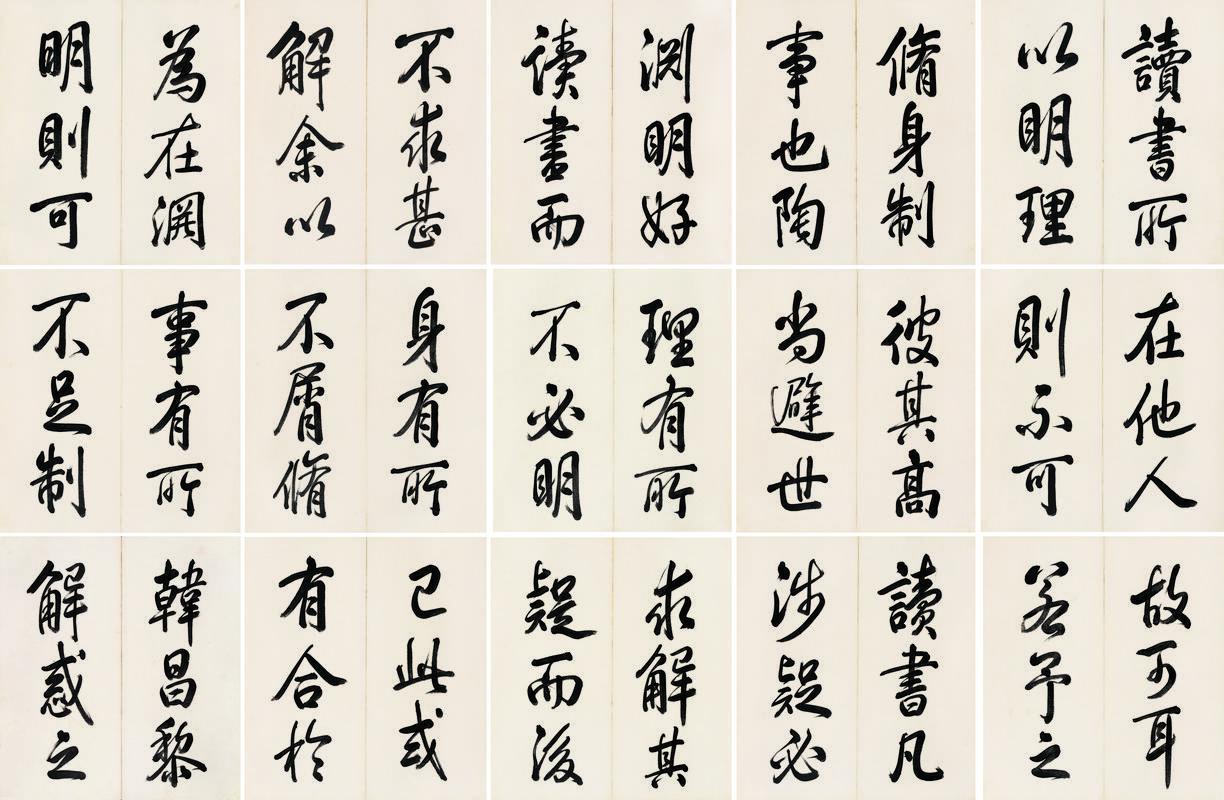 讀書所
以明理
脩身制
事也陶
淵明好
读書而
不求甚
解余以
為在淵
明則可
在他人
則不可
彼其高
尚避世
理有所
不必明
身有所
不屑脩
事有所
不足制
故可耳
若予之
讀書凡
涉疑必
求解其
疑而後
已此或
有合於
韓昌黎
解惑之